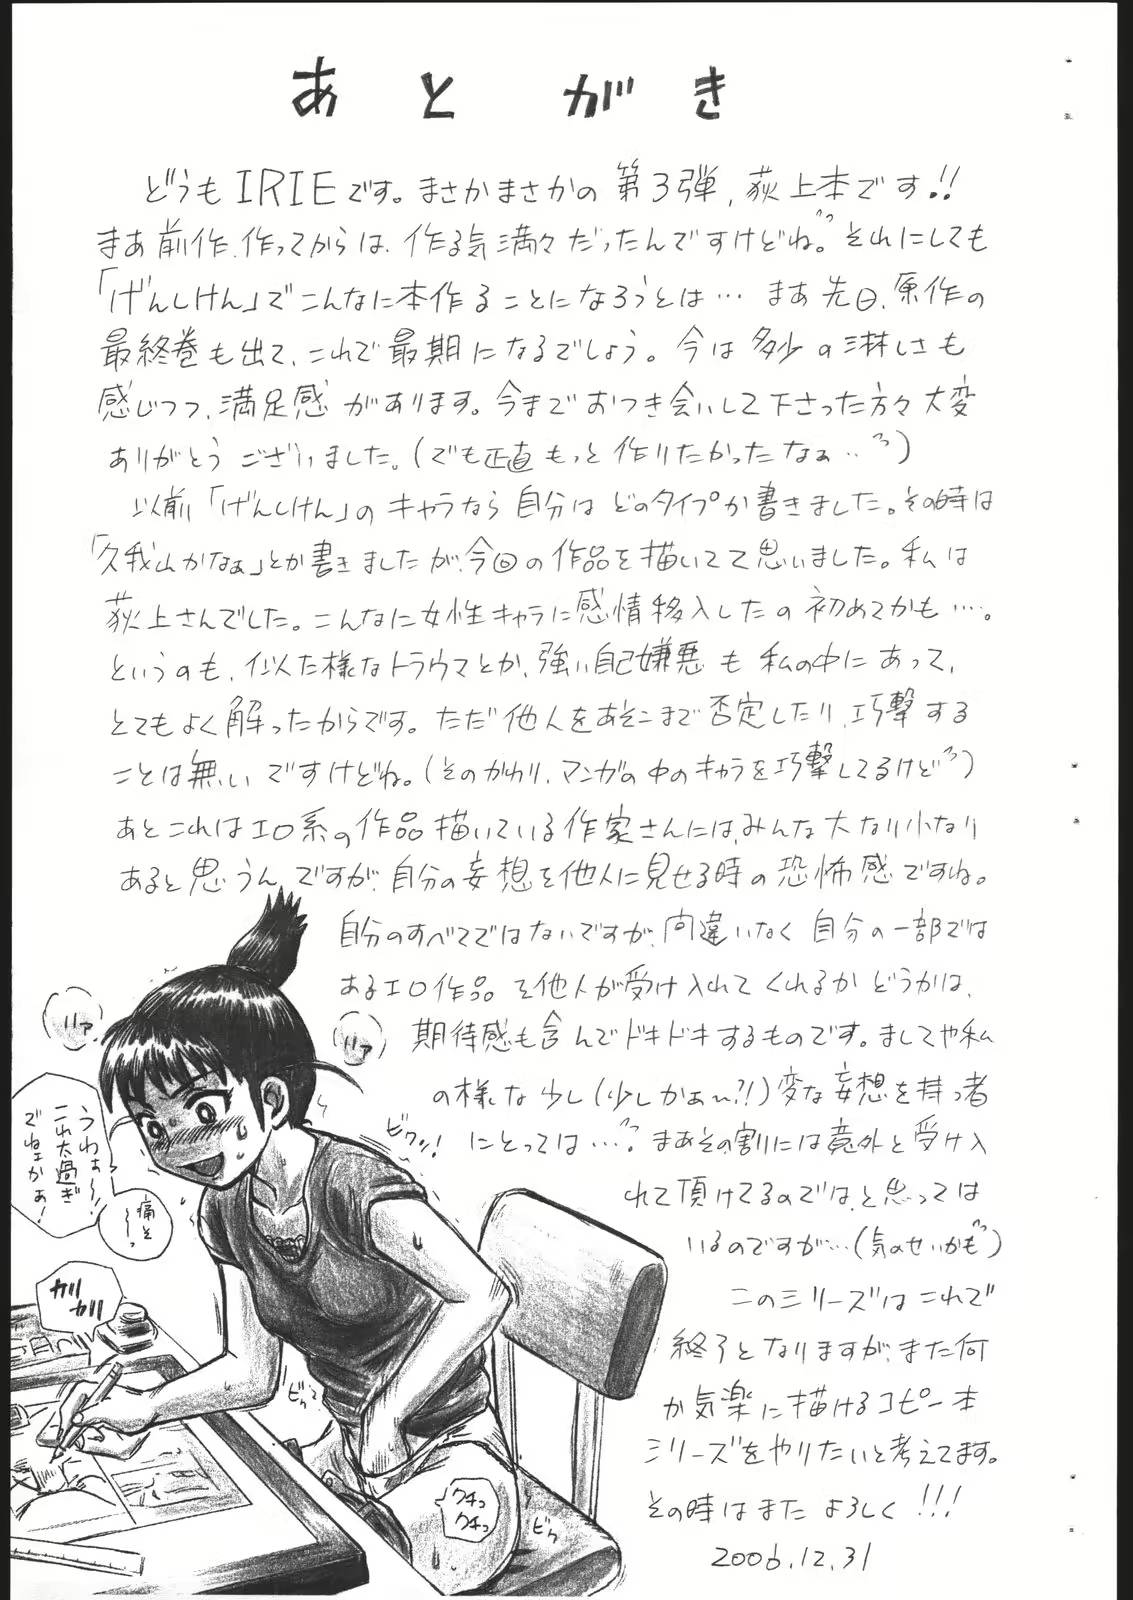 あとがき
どうもIRIEです。まさかまさかの第3弾、荻上本です!!
まあ前作、作ってからは、作る気満々だったんですけどね。それにしても
「げんしけん」でこんなに本作ることになろうとは… まあ先日、原作の
最終巻も出て、これで最期になるでしょう。今は多少の淋しさも
感じつつ、満足感があります。今までおつき会いして下さった方々大変
ありがとうございました。(でも正直もっと作りたかったなぁ…)
以前「げんしけん」のキャラなら自分はどのタイプか書きました。その時は
「久我山かなぁ」とか書きましたが、今回の作品を描いてて思いました。私は
荻上さんでした。こんなに女性キャラに感情移入したの初めてかも…。
というのも、似た様なトラウマとか、強い自己嫌悪も私の中にあって、
とてもよく解ったからです。ただ他人をあそこまで否定したり、攻撃する
ことは無いですけどね。(そのかわり、マンガの中のキャラを攻撃してるけど)
あとこれはエロ系の作品描いている作家さんには、みんな大なり小なり
あると思うんですが、自分の妄想を他人に見せる時の恐怖感ですね。
自分のすべてではないですが、間違いなく自分の一部では
あるエロ作品を他人が受け入れてくれるかどうかは、
期待感も含んでドキドキするものです。ましてや私
の様な少し(少しかぁ〜?!)変な妄想を持つ者
にとっては…。まあその割には意外と受け入
れて頂けてるのでは、と思っては
いるのですが…(気のせいかも)
このシリーズはこれで
終了となりますが、また何
か気楽に描けるコピー本
シリーズをやりたいと考えてます。
その時はまたよろしく!!!
2006.12.31
ハァ
ハァ
うわぁ〜!
これ太過ぎ
でねェかぁ!
痛そ
〜っ
カリ
カリ
ビクッ!
ビクッ
クチュ
クチュ
ビク